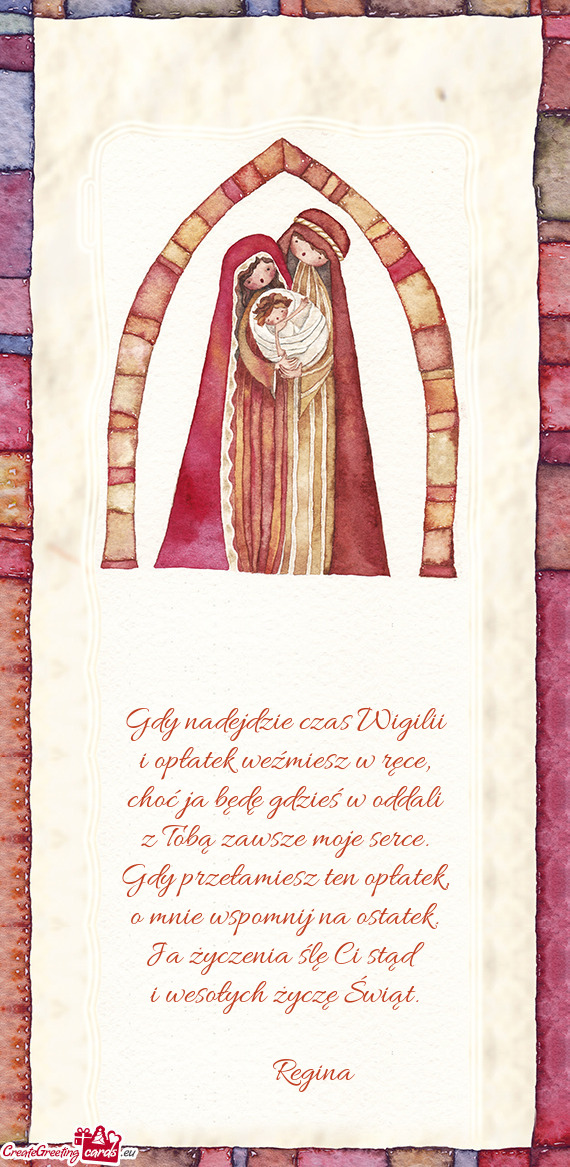 Gdy nadejdzie czas Wigilii
i opłatek weźmiesz w ręce,
choć ja będę gdzieś w oddali
z Tobą zawsze moje serce.
Gdy przełamiesz ten opłatek,
o mnie wspomnij na ostatek.
Ja życzenia ślę Ci stąd
i wesołych życzę Świąt.
Regina
CreateGreeting cards .eu